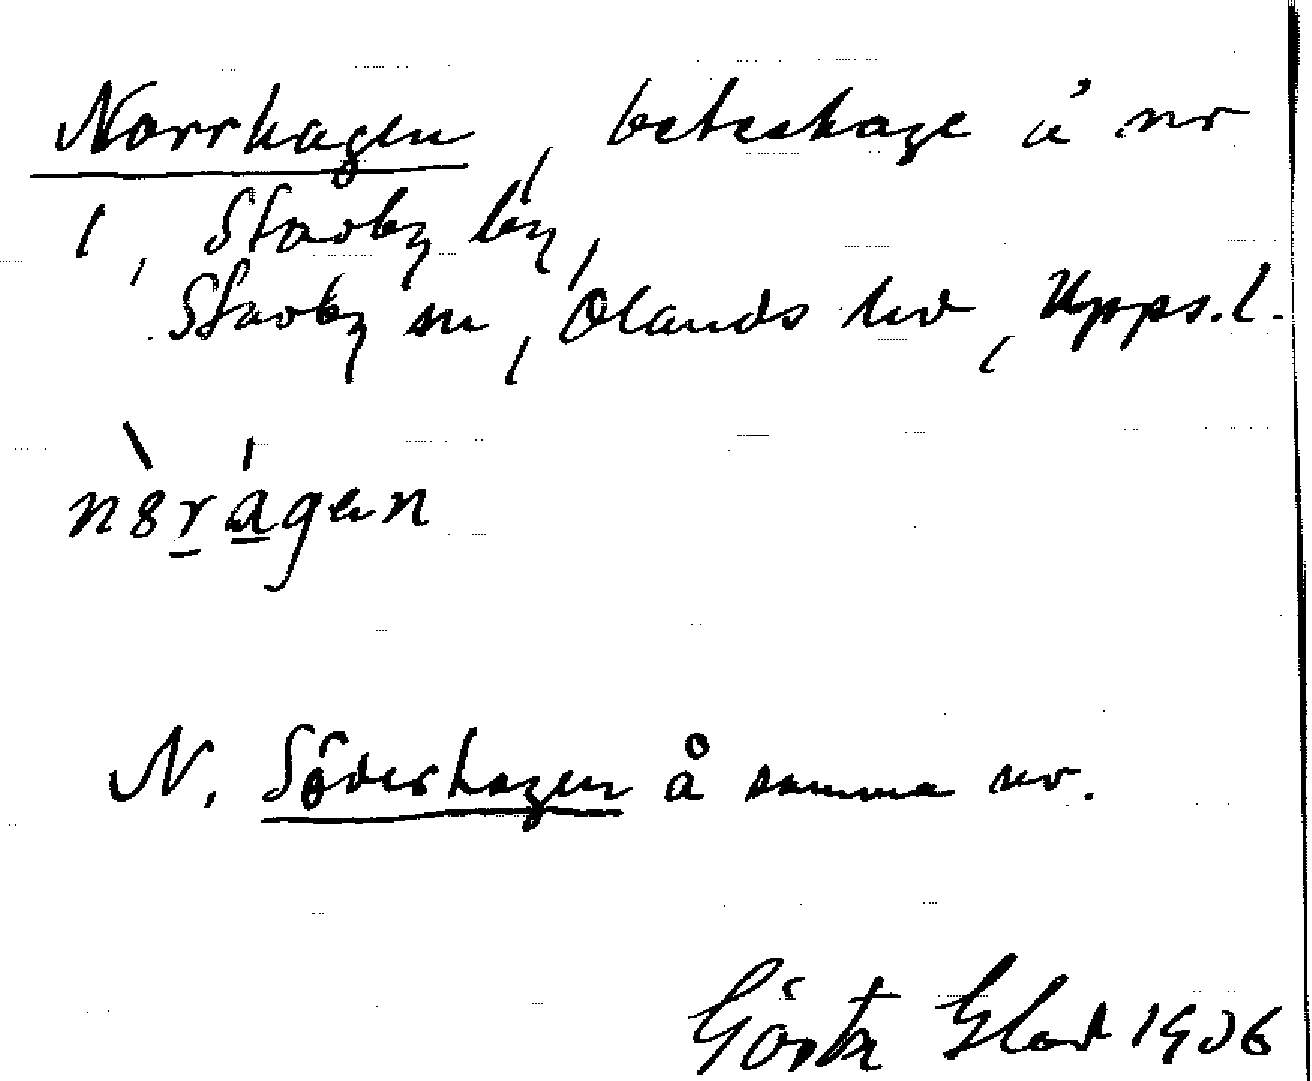 Norrhagen, beteshage å nr
1, Stavby by,
Stavby sn, Olands hd, Upps.l.
nòrágen
N. Söderhagen å samma nr.
Gösta 1936